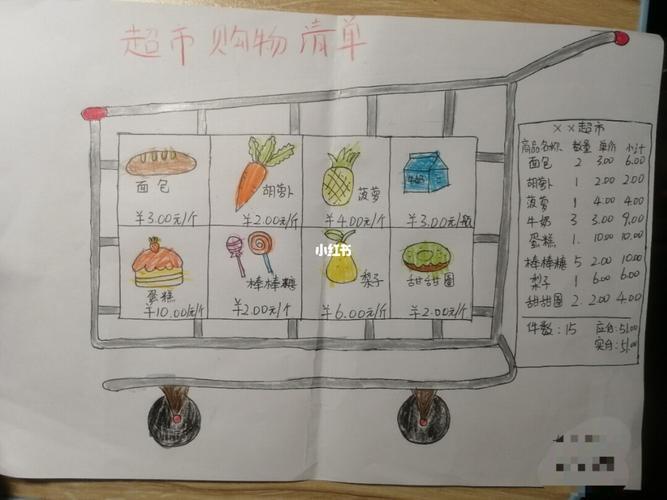 超市购物清单
面包
¥3.00元/个
胡萝卜
¥2.00元/个
菠萝
¥4.00元/个
牛奶
¥3.00元/瓶
蛋糕
¥10.00元/个
棒棒糖
¥2.00元/个
梨子
¥6.00元/个
甜甜圈
¥2.00元/个
小红书
××超市
商品名称 数量 单价 小计
面包 2 3.00 6.00
胡萝卜 1 2.00 2.00
菠萝 1 4.00 4.00
牛奶 3 3.00 9.00
蛋糕 1 10.00 10.00
棒棒糖 5 2.00 10.00
梨子 1 6.00 6.00
甜甜圈 2 2.00 4.00
件数:15 应台:51.00
实台:51.00